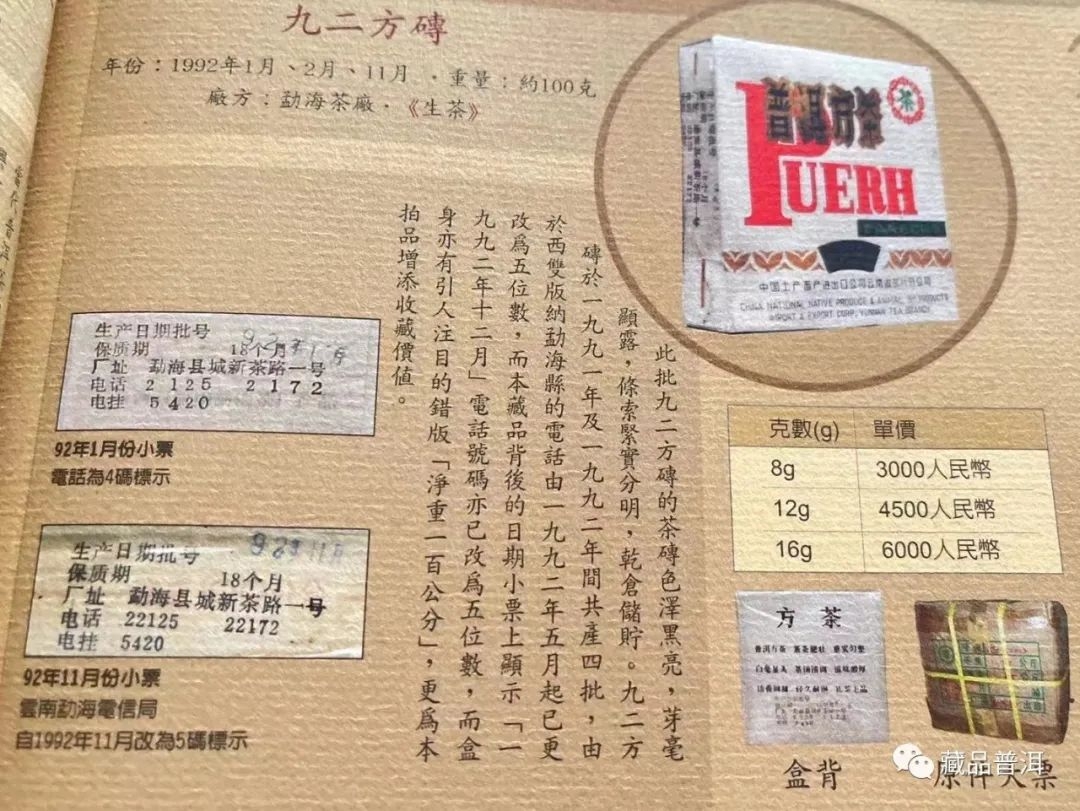 九二方磚
年份：1992年1月、2月、11月 ．重量：約100克
廠方：勐海茶廠．《生茶》
普洱方茶
茶
PUERH
中国土产畜产进出口公司云南省茶叶分公司
CHINA NATIONAL NATIVE PRODUCE & ANIMAL BY PRODUCTS
IMPORT & EXPORT CORP. YUNNAN TEA BRANCH
此批九二方磚的茶磚色澤黑亮，芽毫
顯露，條索緊實分明，乾倉儲貯。九二方
磚於一九九一年及一九九二年間共產四批，由
於西雙版納勐海縣的電話由一九九二年五月起已更
改為五位數，而本藏品背後的日期小票上顯示「一
九九二年十二月」電話號碼亦已改為五位數，而盒
身亦有引人注目的錯版「淨重一百公分」，更為本
拍品增添收藏價值。
生产日期批号 92年1月
保质期 18个月
厂址 勐海县城新茶路一号
电话 2125 2172
电挂 5420
92年1月份小票
電話為4碼標示
生产日期批号 92年11月
保质期 18个月
厂址 勐海县城新茶路一号
电话 22125 22172
电挂 5420
92年11月份小票
雲南勐海電信局
自1992年11月改為5碼標示
克數(g) 單價
8g 3000人民幣
12g 4500人民幣
16g 6000人民幣
方茶
盒背
原件大票
藏品普洱